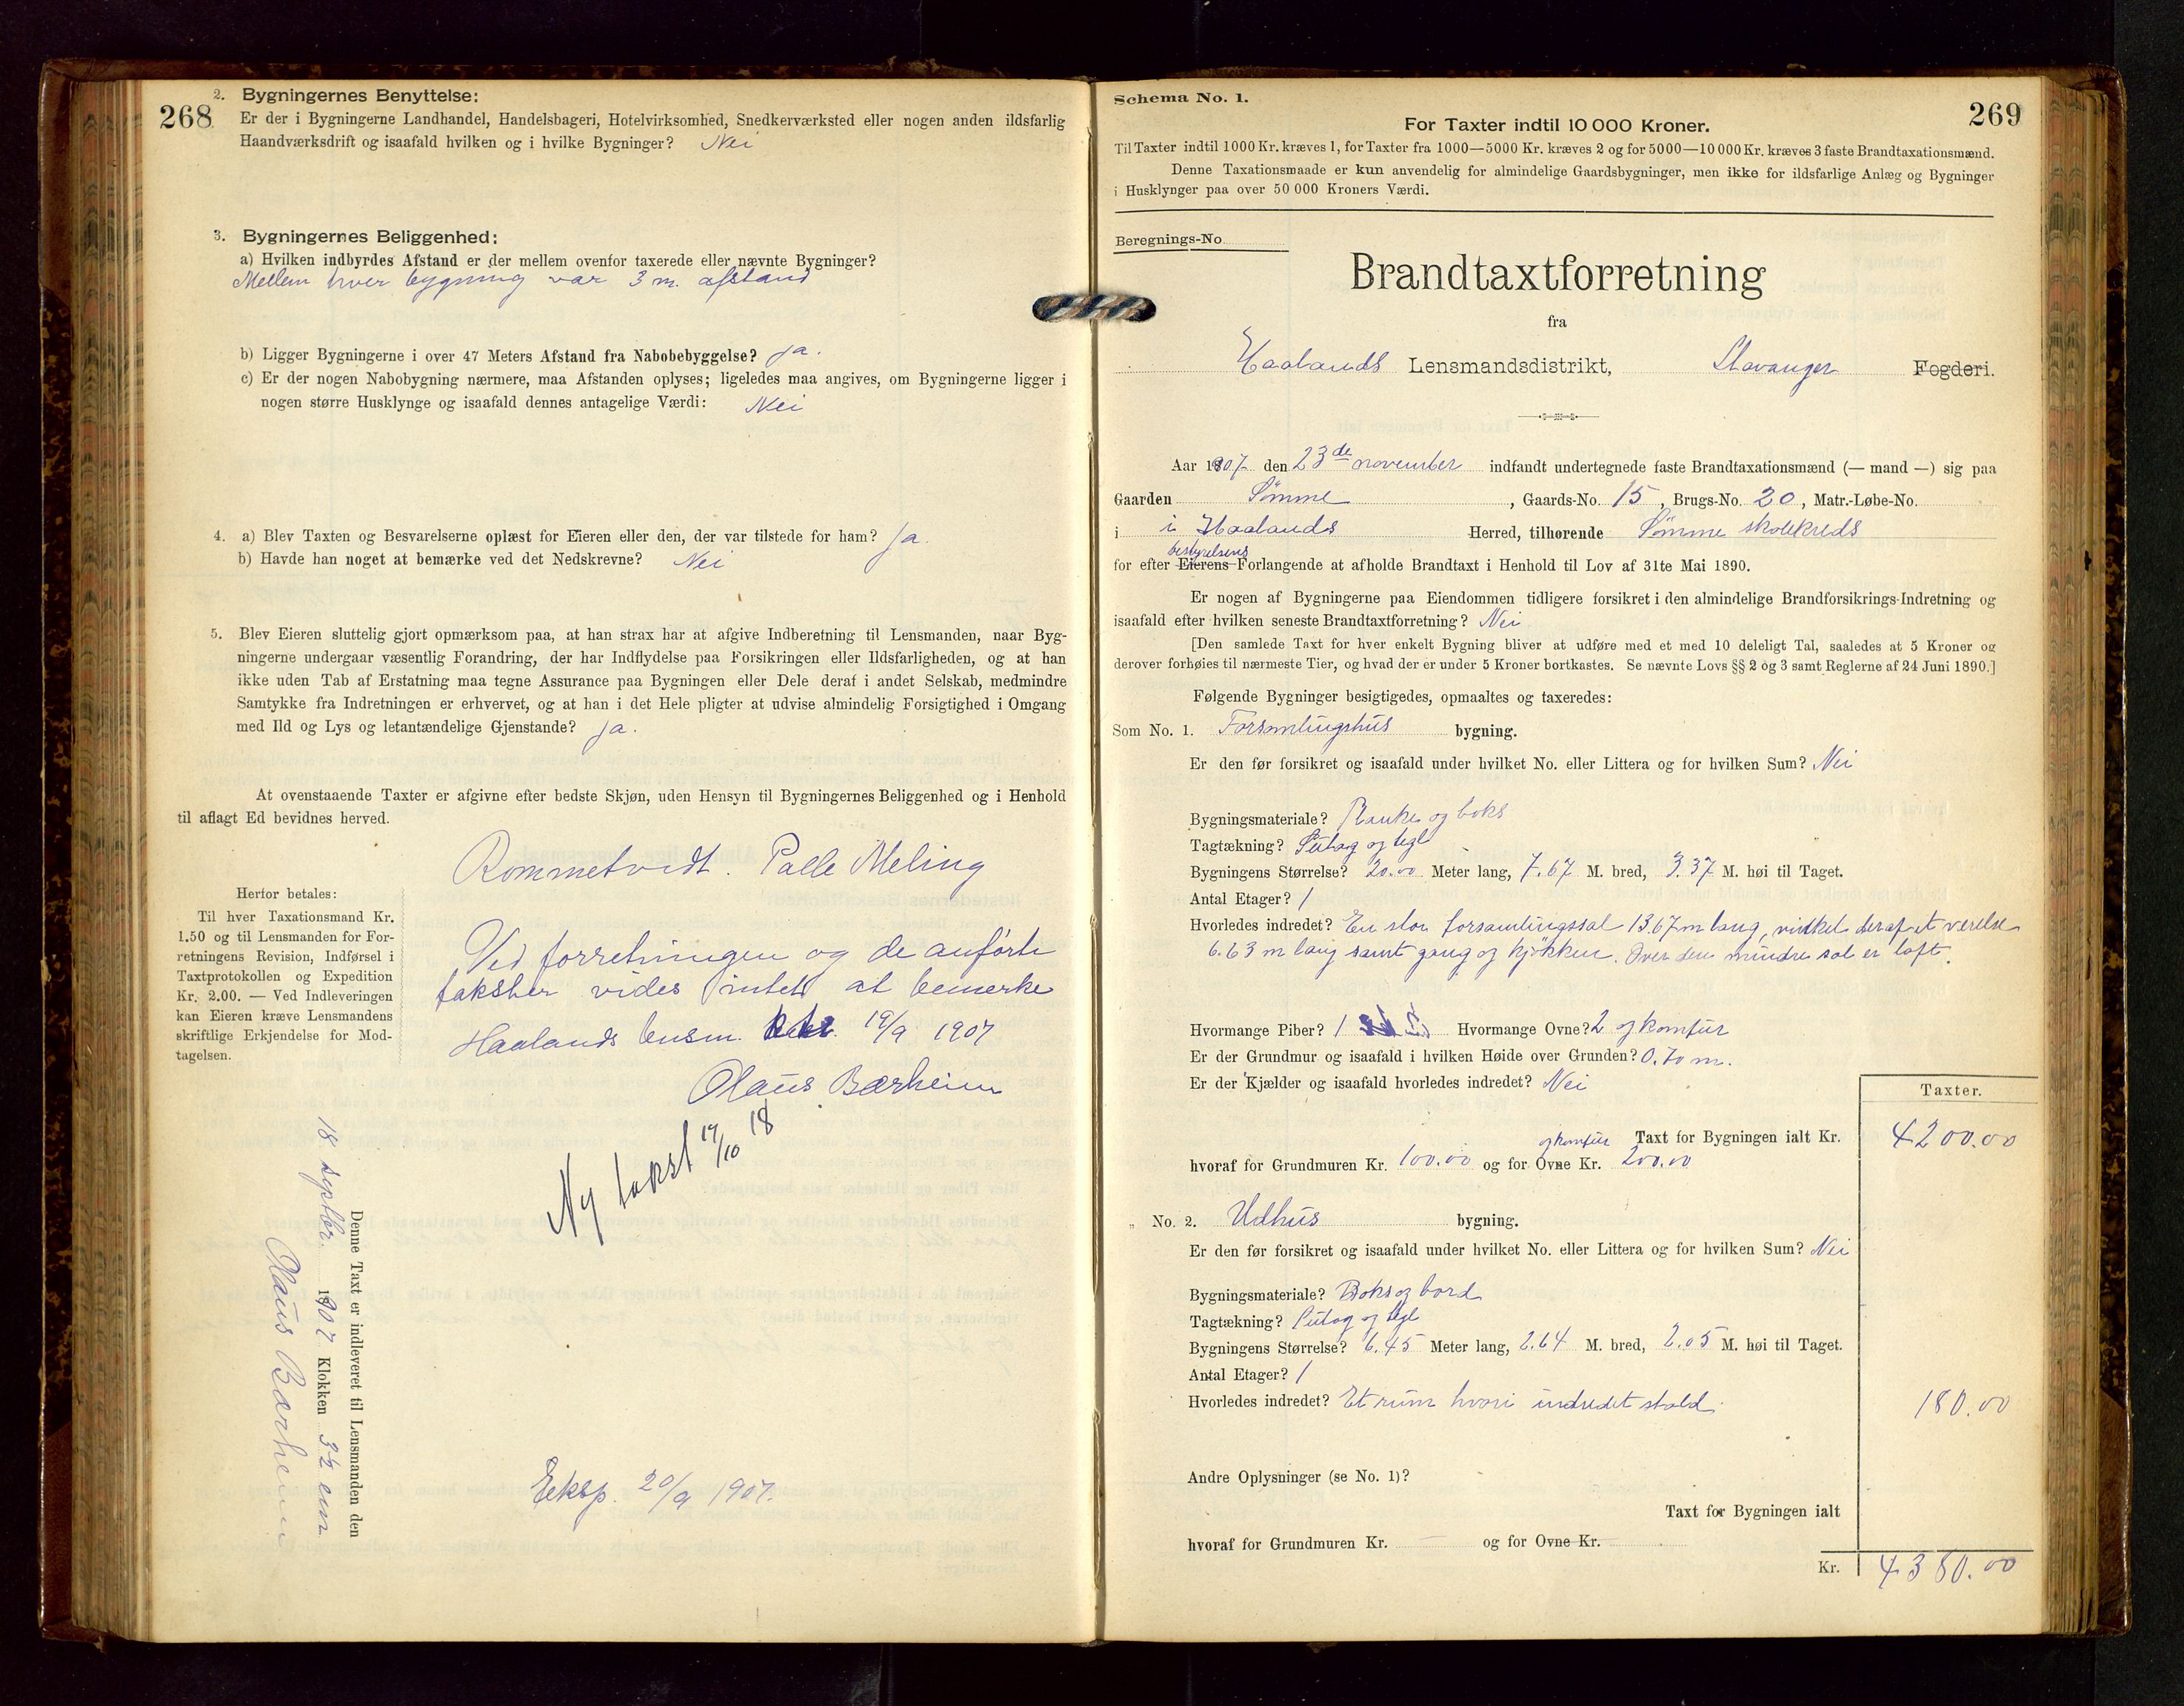 268
2. Bygningernes Benyttelse:
Er der i Bygningerne Landhandel, Handelsbageri, Hotelvirksomhed, Snedkerværksted eller nogen anden ildsfarlig
Haandværksdrift og isaafald hvilken og i hvilke Bygninger? Nei
3. Bygningernes Beliggenhed:
a) Hvilken indbyrdes Afstand er der mellem ovenfor taxerede eller nævnte Bygninger?
Mellem hver bygning var 3 m. afstand
b) Ligger Bygningerne i over 47 Meters Afstand fra Nabobebyggelse? ja.
c) Er der nogen Nabobygning nærmere, maa Afstanden oplyses; ligeledes maa angives, om Bygningerne ligger i
nogen større Husklynge og isaafald dennes antagelige Værdi: Nei
4. a) Blev Taxten og Besvarelserne oplæst for Eieren eller den, der var tilstede for ham? ja.
b) Havde han noget at bemærke ved det Nedskrevne? Nei
5. Blev Eieren sluttelig gjort opmærksom paa, at han strax har at afgive Indberetning til Lensmanden, naar Byg-
ningerne undergaar væsentlig Forandring, der har Indflydelse paa Forsikringen eller Ildsfarligheden, og at han
ikke uden Tab af Erstatning maa tegne Assurance paa Bygningen eller Dele deraf i andet Selskab, medmindre
Samtykke fra Indretningen er erhvervet, og at han i det Hele pligter at udvise almindelig Forsigtighed i Omgang
med Ild og Lys og letantændelige Gjenstande? ja.
At ovenstaaende Taxter er afgivne efter bedste Skjøn, uden Hensyn til Bygningernes Beliggenhed og i Henhold
til aflagt Ed bevidnes herved.
Rommetvedt. Palle Meling
Herfor betales:
Til hver Taxationsmand Kr.
1.50 og til Lensmanden for For-
retningens Revision, Indførsel i
Taxtprotokollen og Expedition
Kr. 2.00. — Ved Indleveringen
kan Eieren kræve Lensmandens
skriftlige Erkjendelse for Mod-
tagelsen.
Ved forretningen og de anförte
takster vides intet at bemerke
Haalands lensm. 19/9 1907
Olaus Bærheim
Ny takst 19/10 18
Denne Taxt er indleveret til Lensmanden den
18 septbr. 1907 Klokken 3½ em
Olaus Bærheim
Eksp. 20/9 1907.
269
Schema No. 1.
For Taxter indtil 10 000 Kroner.
Til Taxter indtil 1000 Kr. kræves 1, for Taxter fra 1000—5000 Kr. kræves 2 og for 5000—10 000 Kr. kræves 3 faste Brandtaxationsmænd.
Denne Taxationsmaade er kun anvendelig for almindelige Gaardsbygninger, men ikke for ildsfarlige Anlæg og Bygninger
i Husklynger paa over 50 000 Kroners Værdi.
Beregnings-No
Brandtaxtforretning
fra
Haalands Lensmandsdistrikt, Stavanger Fogderi.
Aar 1907 den 23de november indfandt undertegnede faste Brandtaxationsmænd (— mand —) sig paa
Gaarden Sömme, Gaards-No. 15, Brugs-No. 20, Matr.-Løbe-No.
i i Haalands Herred, tilhørende Sömme skolekreds
bestyrelsens
for efter Eierens Forlangende at afholde Brandtaxt i Henhold til Lov af 31te Mai 1890.
Er nogen af Bygningerne paa Eiendommen tidligere forsikret i den almindelige Brandforsikrings-Indretning og
isaafald efter hvilken seneste Brandtaxtforretning? Nei
[Den samlede Taxt for hver enkelt Bygning bliver at udføre med et med 10 deleligt Tal, saaledes at 5 Kroner og
derover forhøies til nærmeste Tier, og hvad der er under 5 Kroner bortkastes. Se nævnte Lovs §§ 2 og 3 samt Reglerne af 24 Juni 1890.]
Følgende Bygninger besigtigedes, opmaaltes og taxeredes:
Som No. 1. Forsamlingshus bygning.
Er den før forsikret og isaafald under hvilket No. eller Littera og for hvilken Sum? Nei
Bygningsmateriale? Planke og boks
Tagtækning? Sutag og tegl
Bygningens Størrelse? 20.00 Meter lang, 7.67 M. bred, 3.37 M. høi til Taget.
Antal Etager? 1
Hvorledes indredet? En stor forsamlingssal 13.67 m lang, vinkel deraf et verelse
6.63 m lang samt gang og kjökken. Over den mindre sal er loft.
Hvormange Piber? 1 Hvormange Ovne? 2 og komfur
Er der Grundmur og isaafald i hvilken Høide over Grunden? 0.70 m.
Er der Kjælder og isaafald hvorledes indredet? Nei
Taxter.
Taxt for Bygningen ialt Kr. 4200.00
og komfur
hvoraf for Grundmuren Kr. 100.00 og for Ovne Kr. 200.00
" No. 2. Udhus bygning.
Er den før forsikret og isaafald under hvilket No. eller Littera og for hvilken Sum? Nei
Bygningsmateriale? Boks og bord
Tagtækning? Sutag og tegl
Bygningens Størrelse? 6.45 Meter lang, 2.64 M. bred, 2.05 M. høi til Taget.
Antal Etager? 1
Hvorledes indredet? Et rum hvori indredet stald. 180.00
Andre Oplysninger (se No. 1)?
Taxt for Bygningen ialt
hvoraf for Grundmuren Kr. — og for Ovne Kr.
Kr. 4380.00